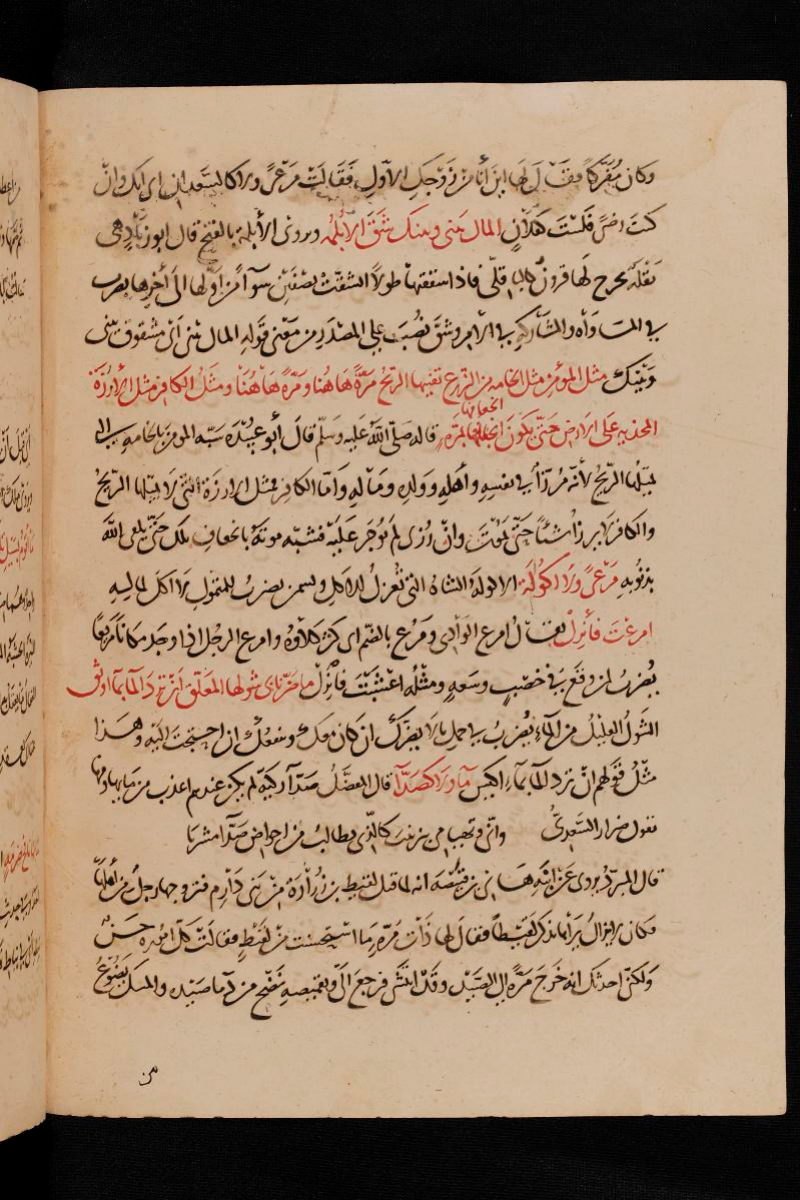 وكان مفرّكاً فقال لها اين أنا من زوجك الاول فقالت مرعىً ولا كالسعدان اى انك وان
كنت رضىً فلست كفلان المال بينى وبينك شقّ الأُبلُمة ويروى الأَبلمة بالفتح قال ابو زياد هى
بقلة تخرج لها قرون كالباقلّى فاذا شققتها طولاً انشقّت نصفين سوآءً من اوّلها الى آخرها يضرب
فى المساواة والمشاركة فى الامر وشقّ نُصب على المصدر من معنى قوله المال بينى اى مشقوق بينى
وبينك مثل المؤمن مثل الخامة من الزرع تفيئها الريح مرّةً هاهنا ومرّة هاهنا ومثل الكافر مثل الارزة
المجذية على الارض حتّى يكون انجعافها بمرّه قاله صلى الله عليه وسلّم قال أبو عبيدة شبّه المومن بالخامة التى
تميّلها الريح لأنه مُرزّأ فى نفسه وأهله وولده وماله وأمّا الكافر فمثل الارزة التى لا تميّلها الريح
والكافر لا يرزأ شيئاً حتّى يموت وان رُزى لم يُوجر عليه فشبّه موته بانجعاف تلك حتّى يلقى الله
بذنوبه مرعىً ولا اكولة الاكولة الشاة التى تُعزل للاكل وتسمن يضرب للمتمول لا آكل لماله
امرعت فأنزل يقال امرع الوادى ومرُع بالضم اى كثر كلاؤه وامرع الرجل اذا وجد مكاناً مريعاً
يضرب لمن وقع فى خصب وسعة ومثله اعشبت فانزل ما ضرّ نابى شولها المعلّق ان ترد المآ بمآ اوثق
الشول القليل من المآء يُضرب فى حمل ما لا يضرّك ان كان معك وينفعك ان احتجت اليه وهذا
مثل قولهم ان ترد المآ بمآء اكيس مآء ولا كصدّآ قال المفضّل صدّآ ركيّة لم يكن عندهم اعذب من مايها وفيها
يقول ضرار السعدىّ وانى وتهيامى بزينب كالّذى يطالب من احواض صدّآ مشربا
قال المبرّد يروى عن ابنة هانى بن قبيصة انه لما قتل لقيط بن زُرارة من بنى دارم فتزوجها رجل من أهلها
فكان لا يزال يراها تذكر لقيطاً فقال لها ذات مرّة ما استحسنت من لقيطٍ فقالت كلّ اموره حسنٌ
ولكنّى احدثك انه خرج مرّةً الى الصيد وقد انتشى فرجع الىّ وبقميصه نضح من دمآ صيده والمسك يضوّع
من